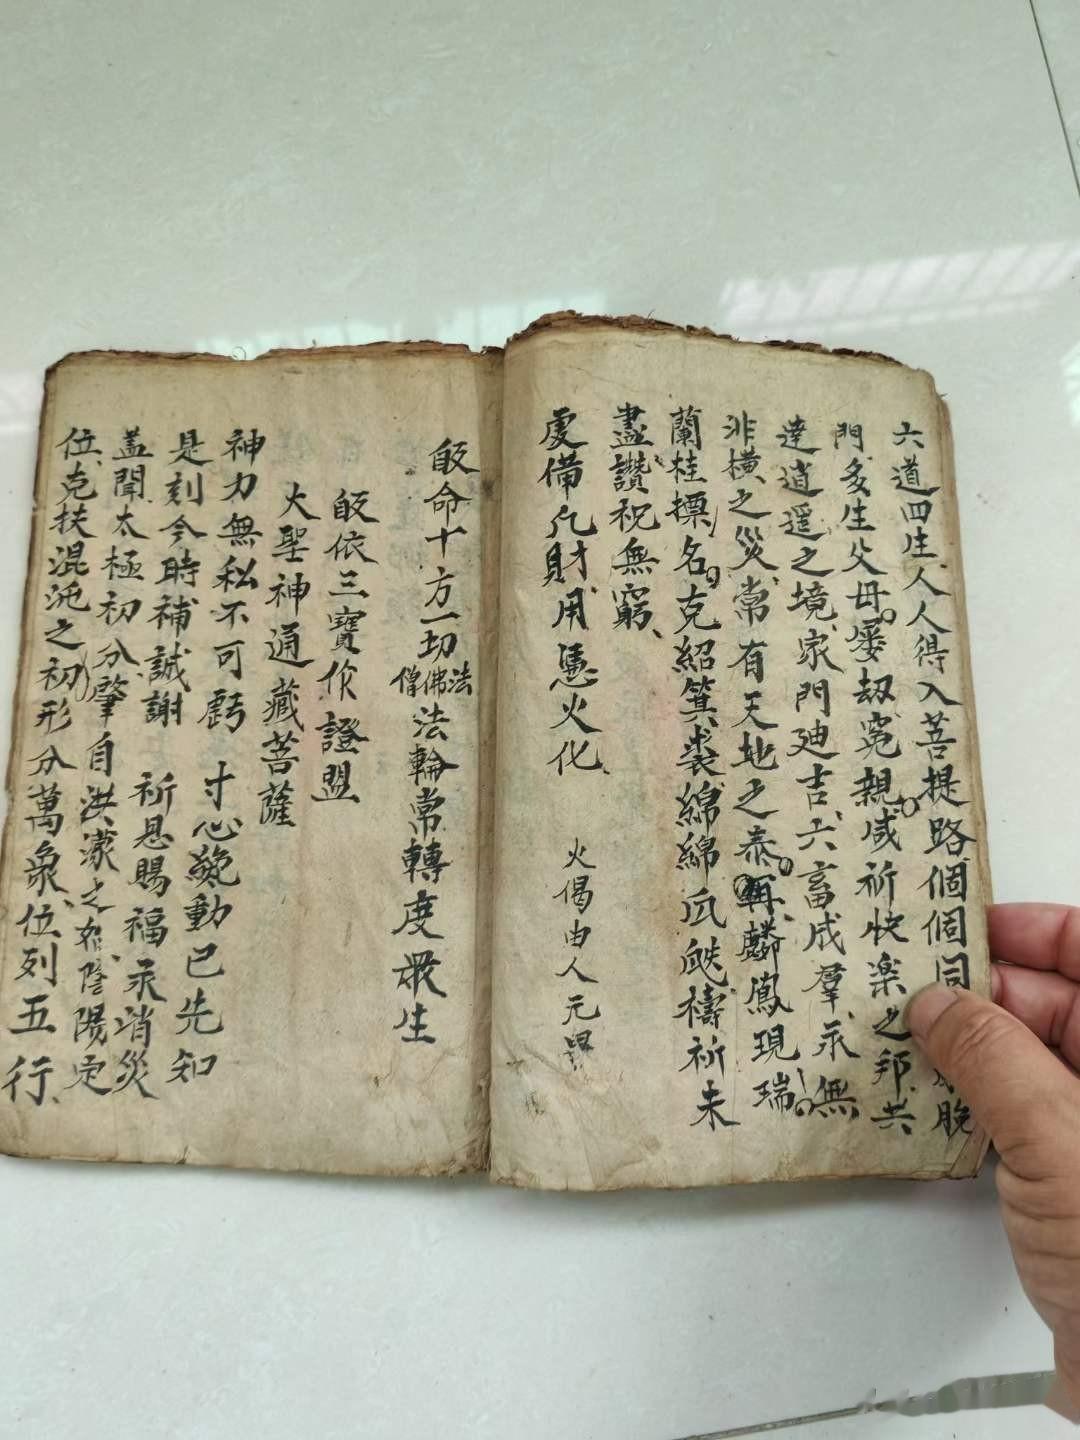 六道四生人人得入菩提路個個同脫
門、多生父母。屢劫冤親。咸祈快楽之邦、共
達逍遥之境、家門廸吉、六畜成羣、永無
非横之災、常有天地之泰。再麟鳳現瑞。
蘭桂摽名。克紹箕裘、綿綿瓜瓞、禱祈未
盡、讚祝無窮、
虔備凢財用憑火化 火偈由人元
皈命十方一切法佛僧法輪常轉度衆生
皈依三寶作證盟
大聖神通藏菩薩
神力無私不可虧 寸心動已先知
是刻今時補誠謝 祈恩賜福永消災
盖聞、太極初分、肇自洪濛之始、陰陽定
位、克扶混沌之初、形分萬象、位列五行、